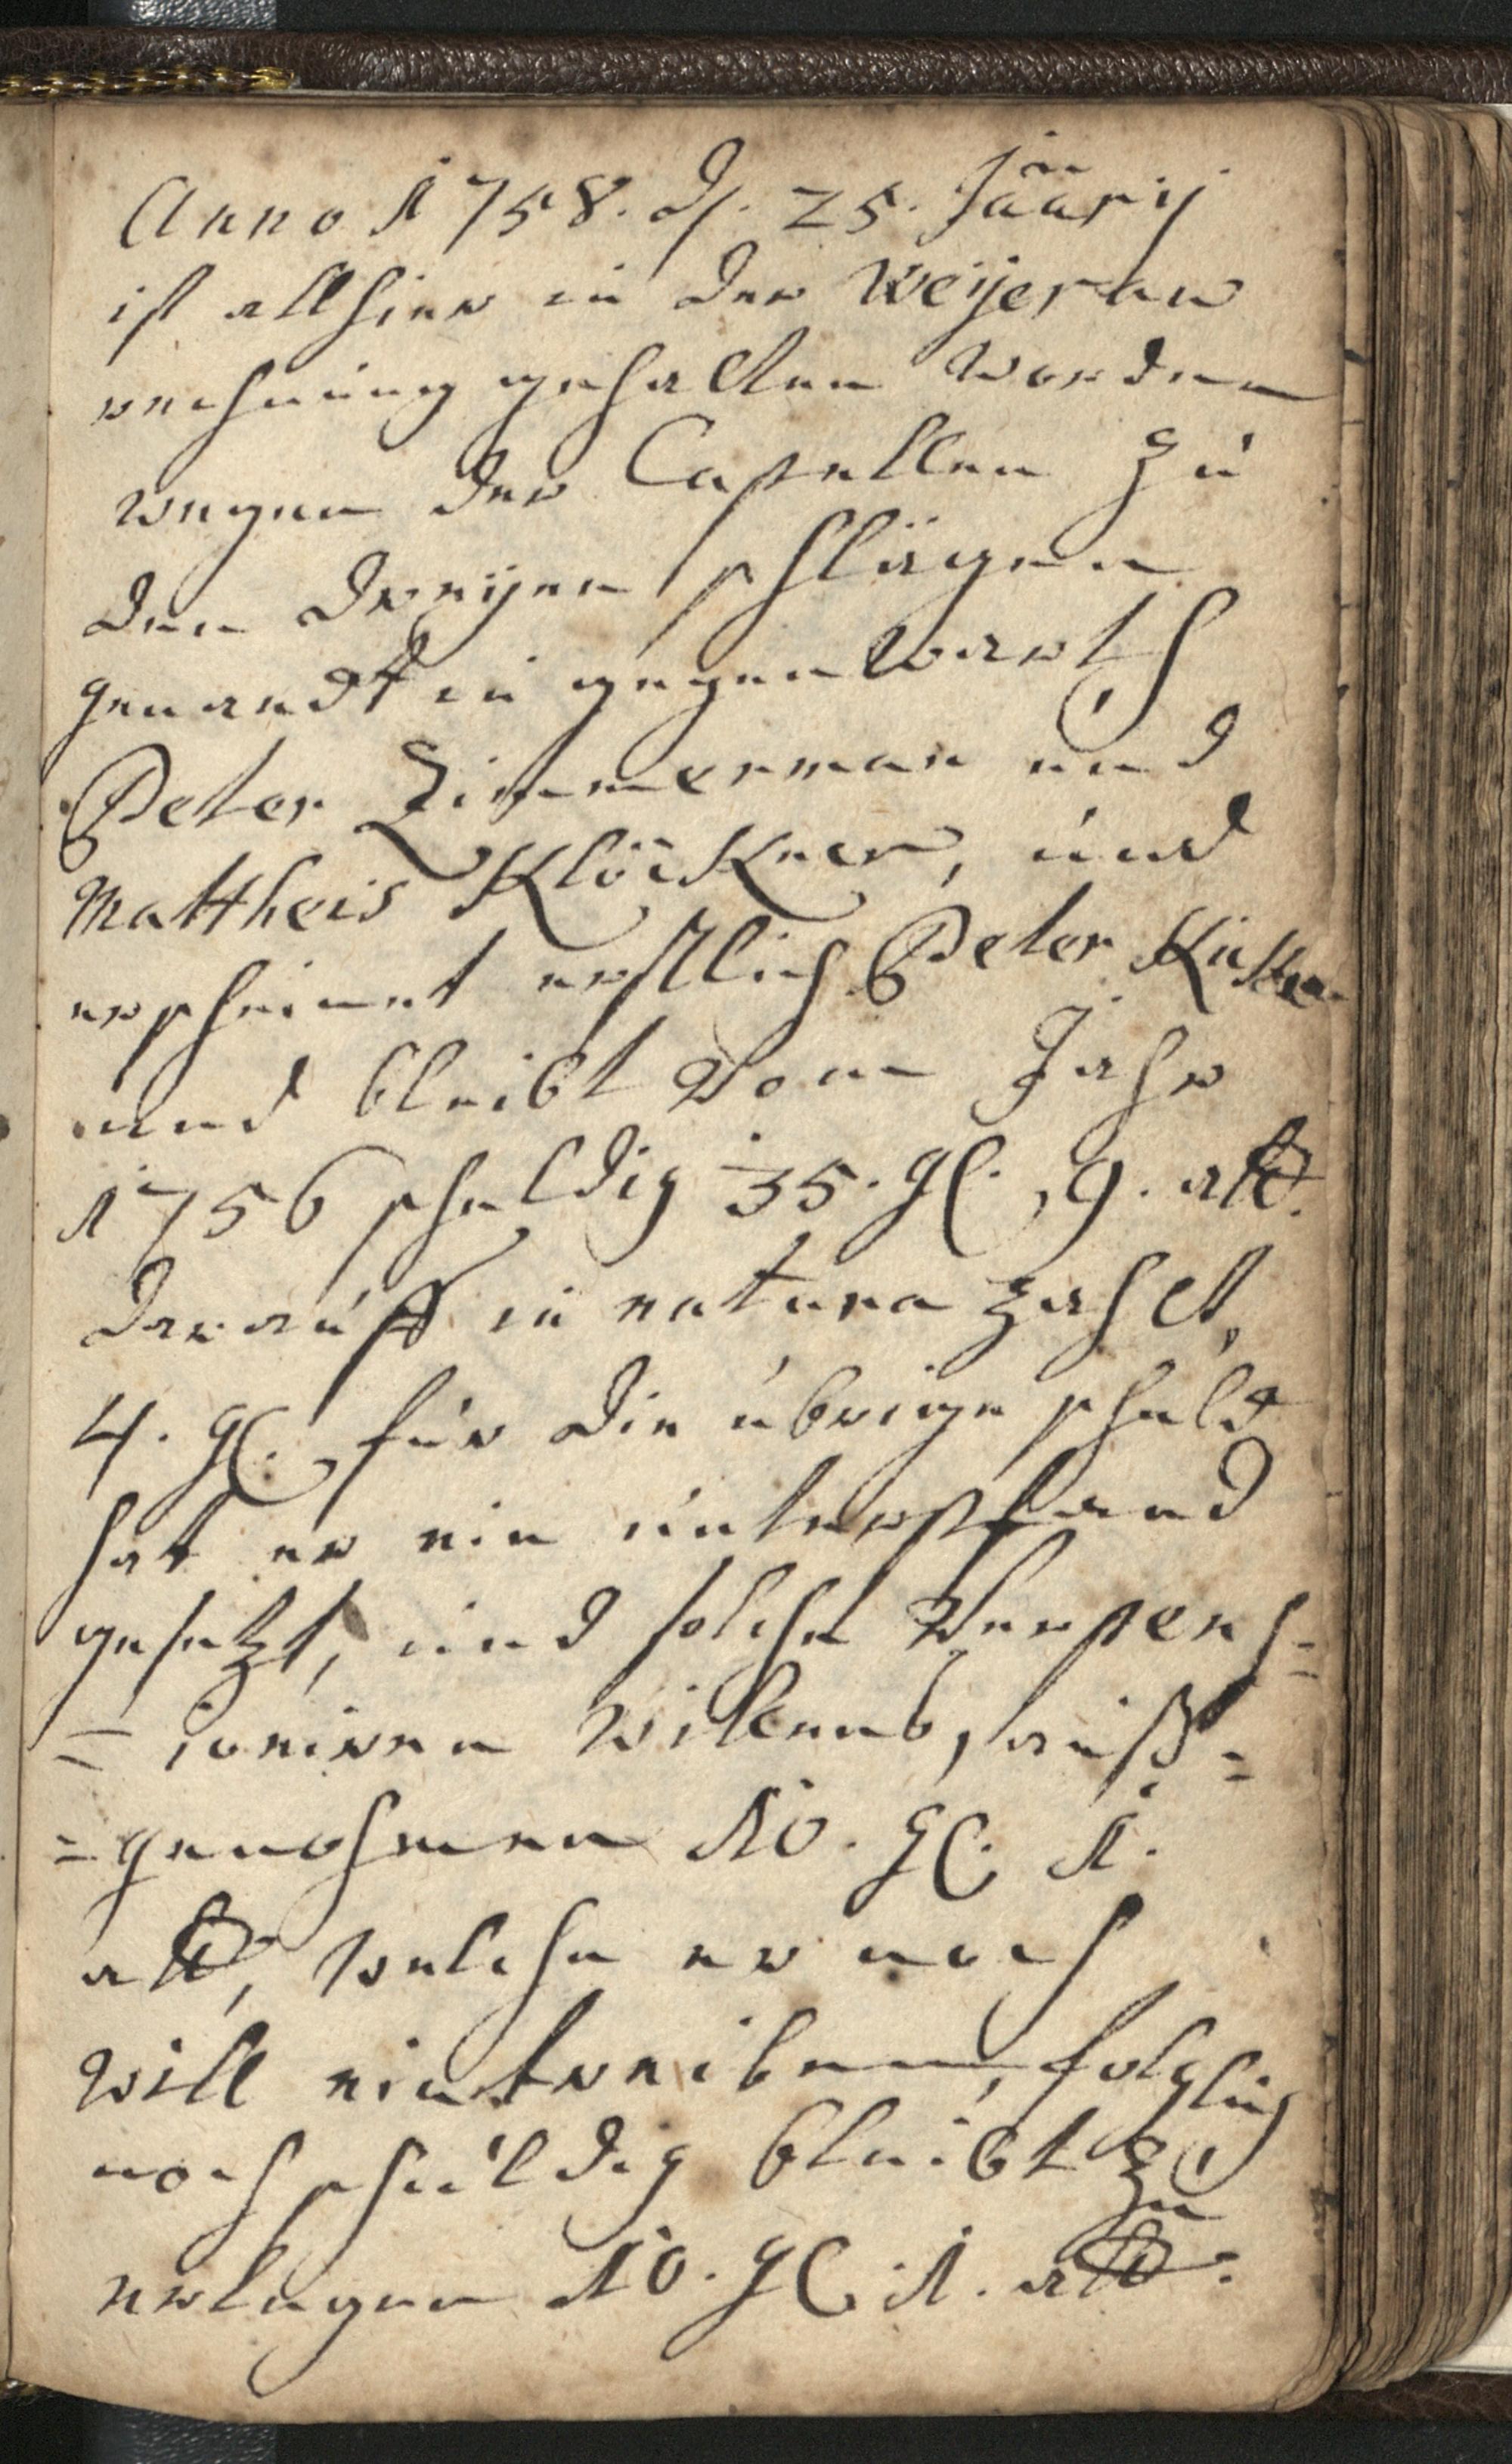 Anno 1758. d. 25. Jäärij
ist allhier in der Weijeraw
rechnung gehalten worden
wegen der Capellen zu
den dreijen schlägen
genandt in gegenwarth
Peter Zimmerman und
Mattheis Klöckner, und
erscheinet erstlich Peter
und bleibt vom Jahr
1756 schuldig 35. gl., 9. alb.
darauff in natura zahlt,
4. gl. für die übrige schuld
hat er ein unterpfand
gesetzt, und solches verpens=
=ioniren willens, auß=
=genohmen 10. gl. 1.
alb, welche er noch
will eintreiben, folglich
noch schuldig bleibt zu
erlegen 10. gl. 1. alb.